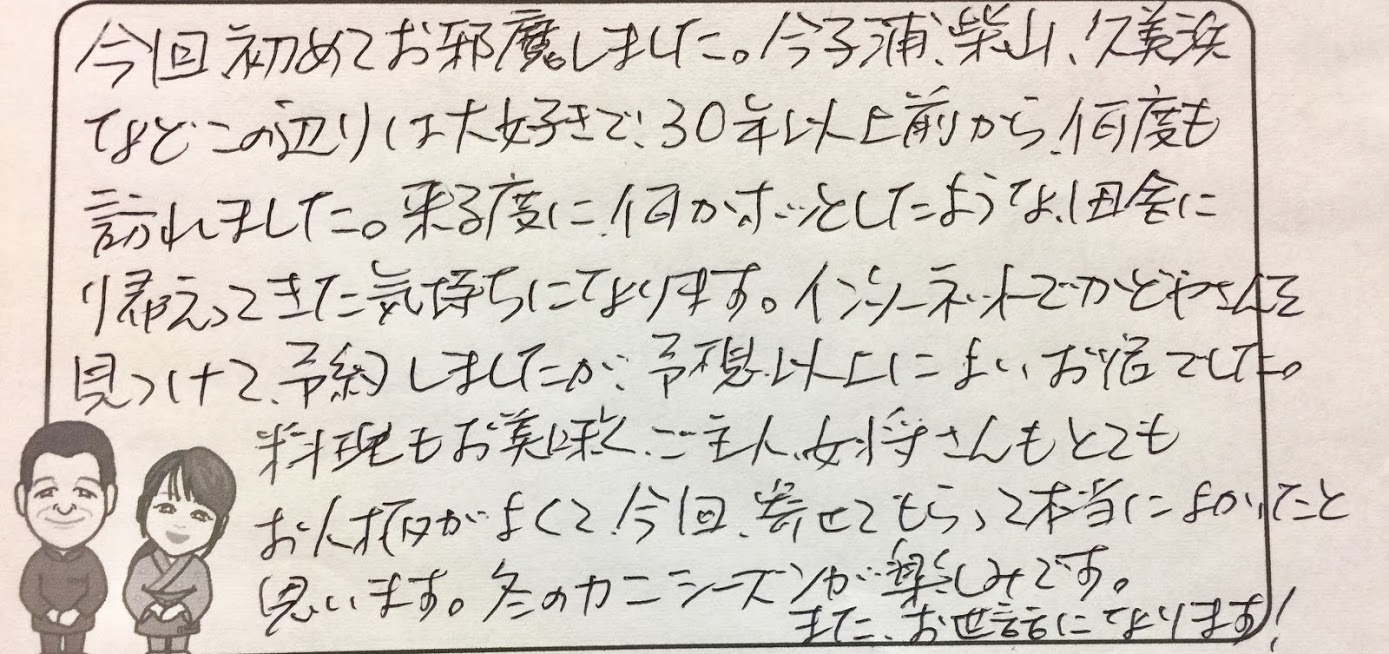 今回初めてお邪魔しました。今子浦、柴山、久美浜
などこの辺りは大好きで、30年以上前から、何度も
訪れました。来る度に、何かホッとしたような、田舎に
帰えってきた気持ちになります。インターネットでかどやさんを
見つけて、予約しましたが、予想以上によいお宿でした。
料理もお美味く、ご主人、女将さんもとても
お人柄がよくて、今回、寄せてもらって本当によかったと
思います。冬のカニシーズンが楽しみです。
また、お世話になります!